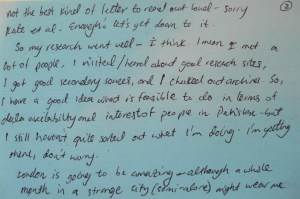 ②
not the best kind of letter to read out loud – sorry
Kate et al. Enough! let's get down to it.
So my research went well – I think. I mean I met a
lot of people, I visited/heard about good research sites,
I got good secondary sources, and I checked out archives. So,
I have a good idea what is feasible to do in terms of
data availability and interest of people in Pakistan – but
I still haven't quite sorted out what I'm doing. I'm getting
there, don't worry.
London is going to be amazing – although a whole
month in a strange city (semi-alone) might wear me